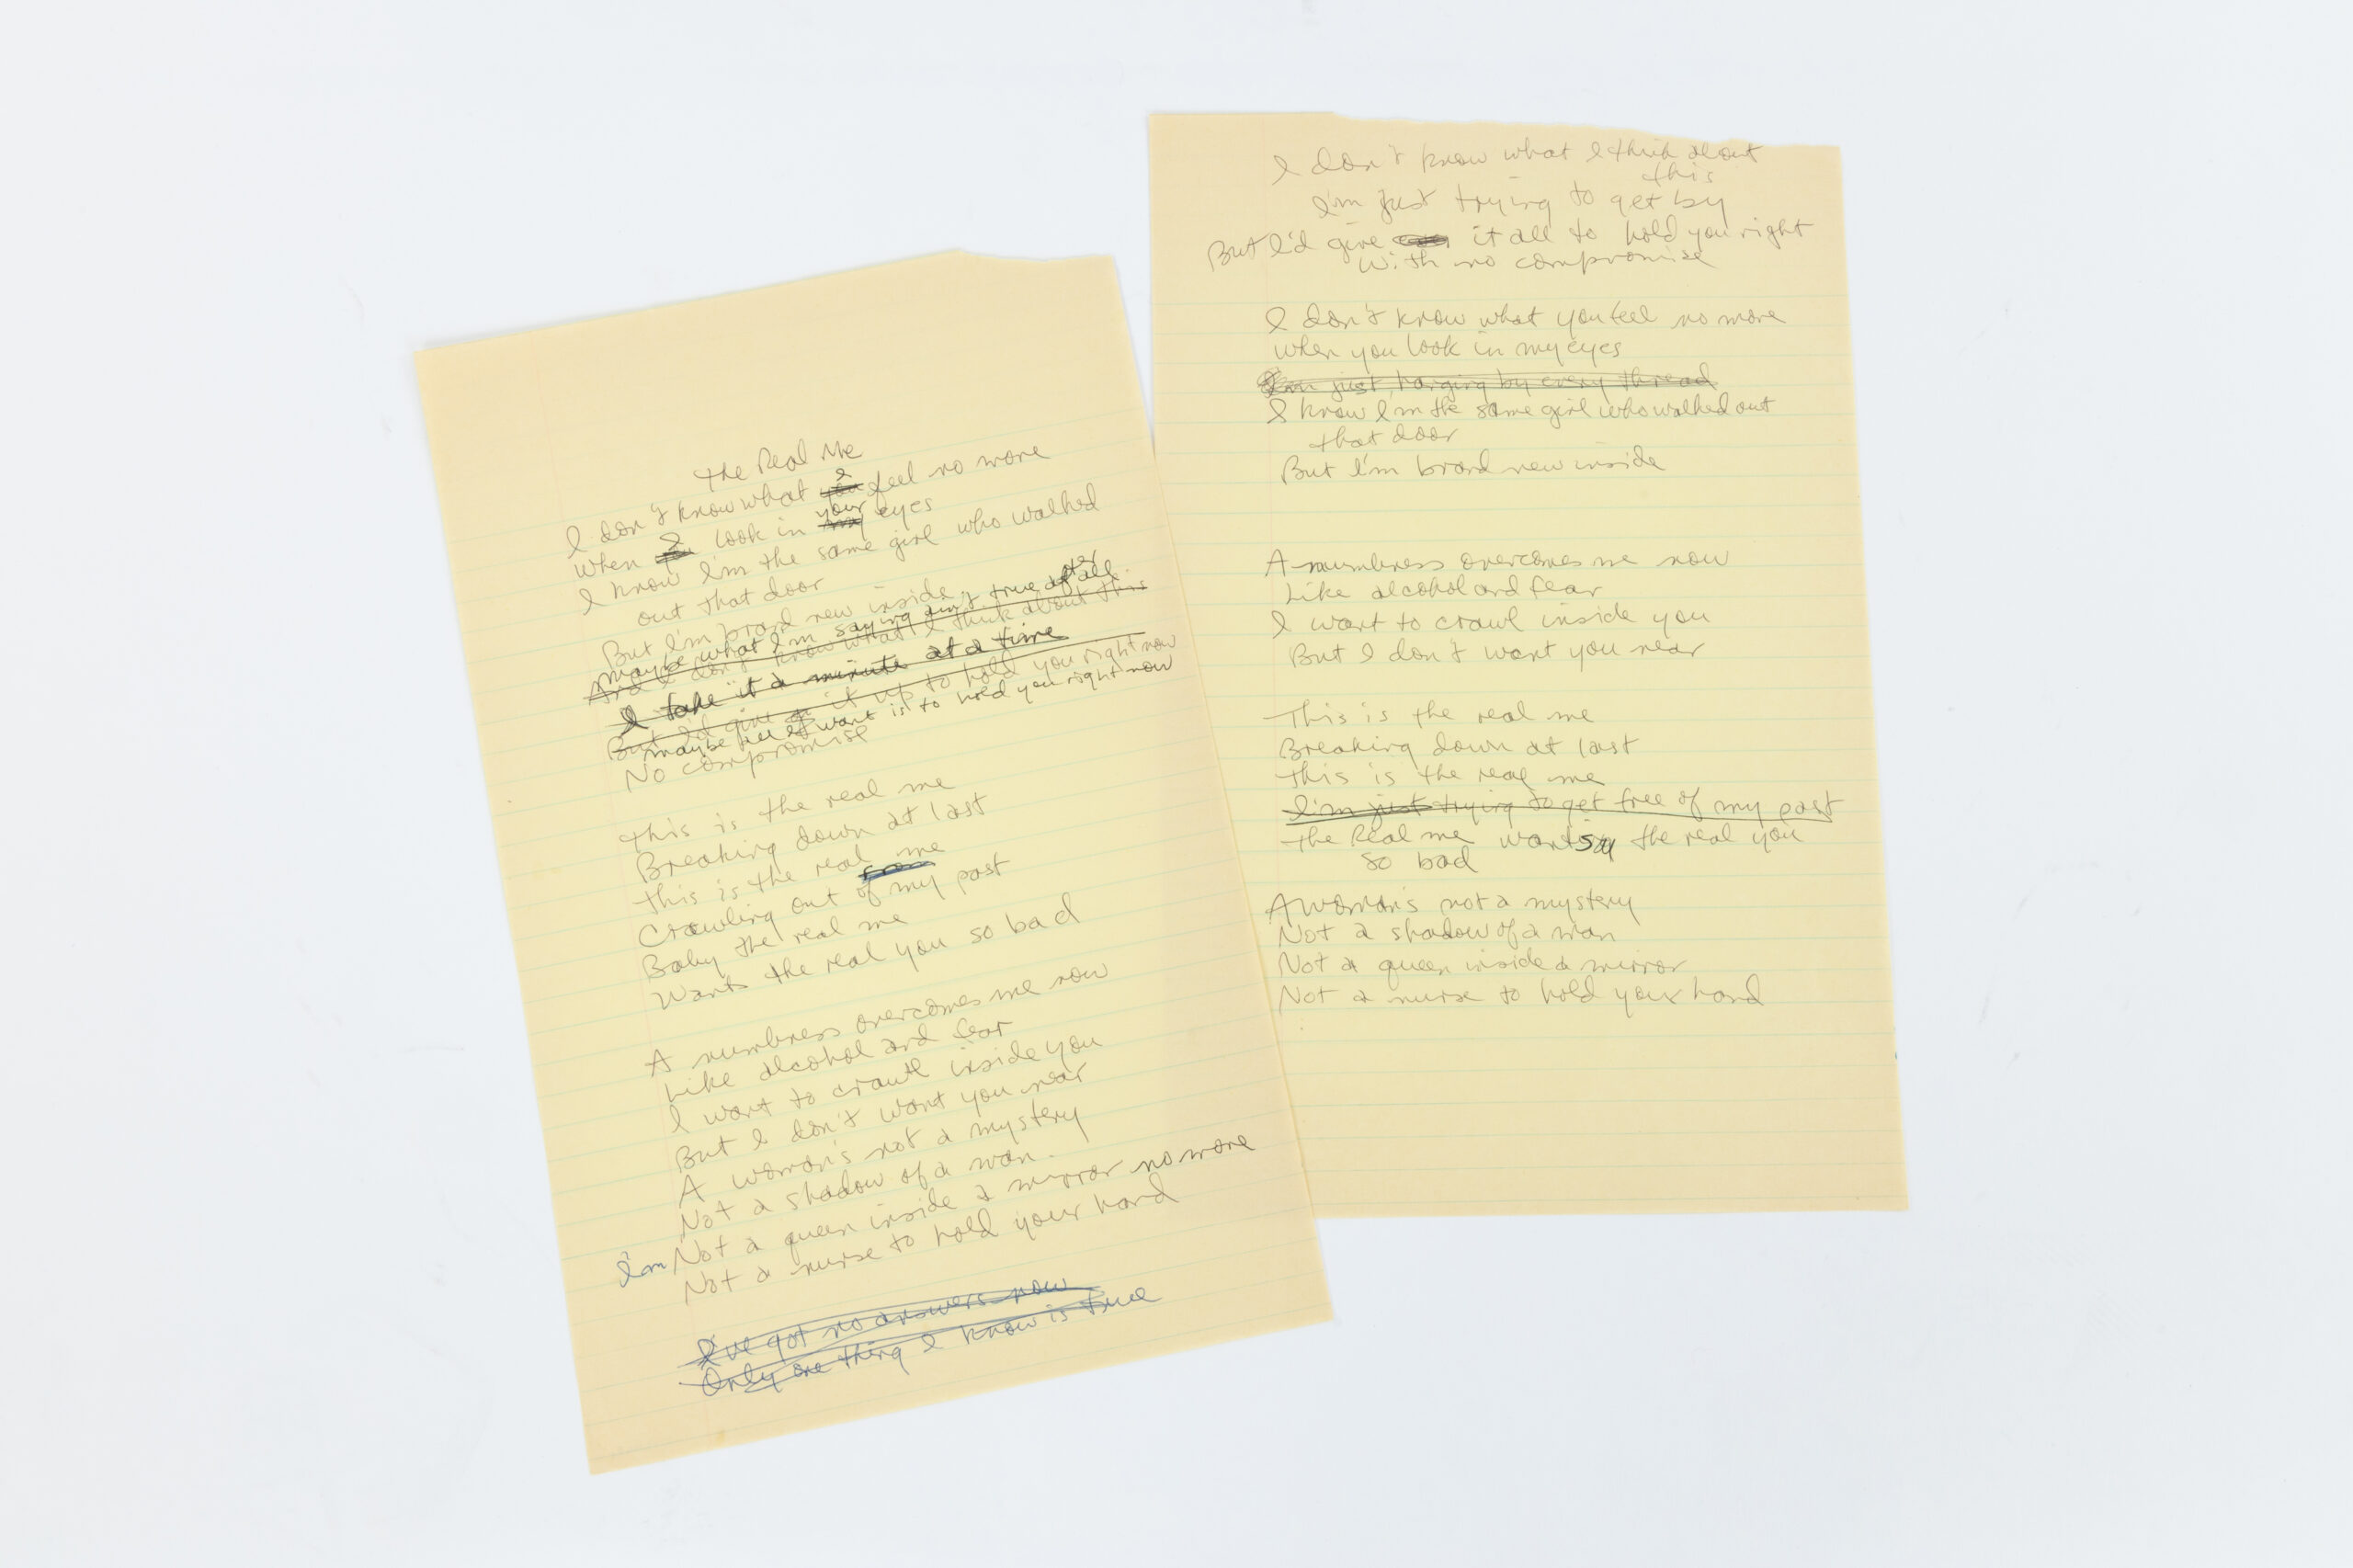 The Real Me
I don't know what you I feel no more
When I look in my your eyes
I know I'm the same girl who walked
out that door
But I'm brand new inside
Maybe what I'm saying ain't true after all
And I don't know what I think about this
I take it a minute at a time
But I'd give it up to hold you right now
Maybe all I want is to hold you right now
No compromise
This is the real me
Breaking down at last
This is the real me
Crawling out from of my past
Baby the real me
Wants the real you so bad
A numbness overcomes me now
Like alcohol and fear
I want to crawl inside you
But I don't want you near
A woman's not a mystery
Not a shadow of a man.
I'm Not a queen inside a mirror no more
Not a nurse to hold your hand
I've got no answers now
Only one thing I know is true
I don't know what I think about
this
I'm just trying to get by
But I'd give it all to hold you right
With no compromise
I don't know what you feel no more
When you look in my eyes
I'm just hanging by every thread
I know I'm the same girl who walked out
that door
But I'm brand new inside
A numbness overcomes me now
Like alcohol and fear
I want to crawl inside you
But I don't want you near
This is the real me
Breaking down at last
This is the real me
I'm just trying to get free of my past
The Real me wants the real you
so bad
A woman's not a mystery
Not a shadow of a man
Not a queen inside a mirror
Not a nurse to hold your hand